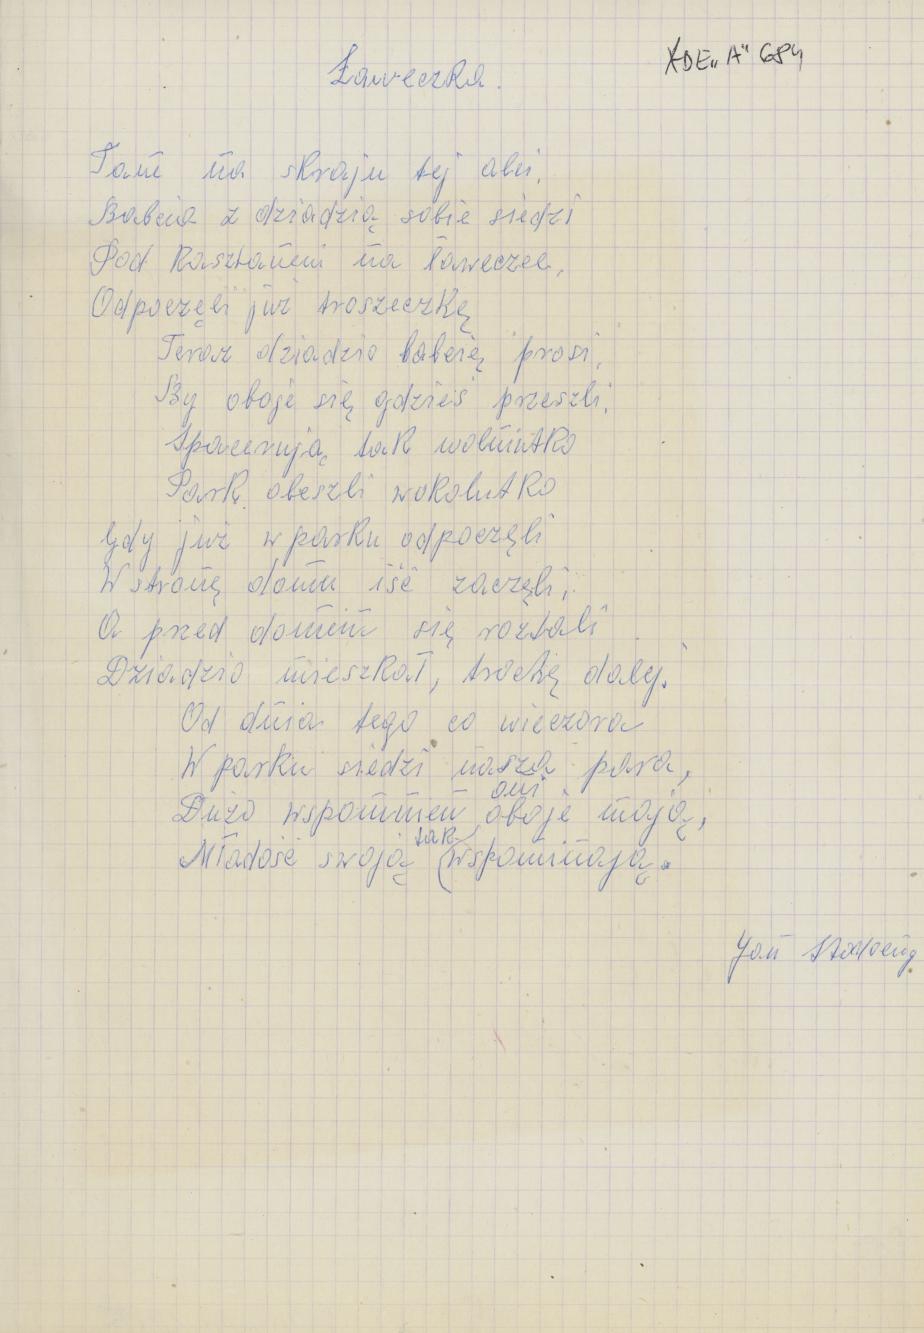 Ławeczka.
KDE„A" 684
Tam na skraju tej alei,
Babcia z dziadzią sobie siedzi
Pod Kasztanem na ławeczce,
Odpoczęli już troszeczkę
Teraz dziadzio babcię prosi,
By oboje się gdzieś przeszli,
Spacerują tak wolniutko
Park obeszli wokolutko
Gdy już w parku odpoczęli
W stronę domu iść zaczęli;
A przed domem się roztali
Dziadzio mieszkał, trochę dalej.
Od dnia tego co wieczora
W parku siedzi nasza para,
oni
Dużo wspomnień oboje mają,
tak
Młodość swoją wspominają.
Jan